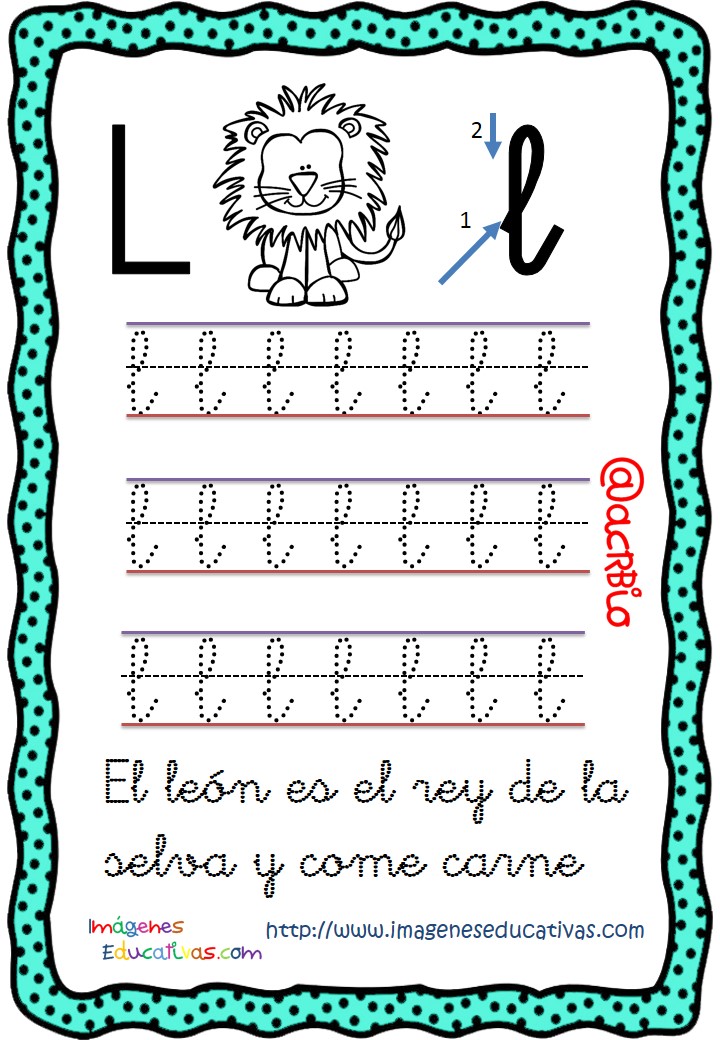 L
2
1
l
l l l l l l l
l l l l l l l
@acrbio
l l l l l l l
El león es el rey de la
selva y come carne
Imágenes
Educativas.com
http://www.imageneseducativas.com